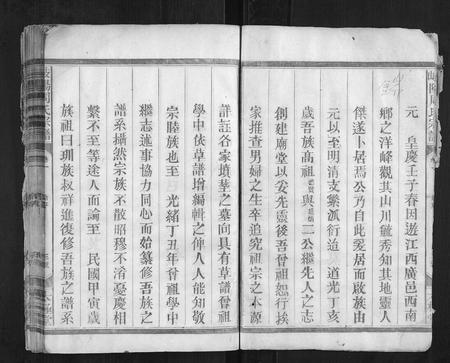 元　皇慶壬子春因遊江西廣邑西南
鄉之洋峰觀其山川毓秀知其地靈人
傑遂卜居焉公乃自此爰居而啟族由
元以至明清支繁派衍迨　道光丁亥
歲吾族高祖與二公繼先人之志
創建廟堂以妥先靈後吾曾祖恕行挨
家推查男婦之生卒追究祖宗之本源
詳註各家墳塋之墓向具有草譜曾祖
學中依草譜增編輯之俾人人能知敬
宗睦族也至　光緒丁丑年曾祖學中
繼志述事協力同心而始纂修吾族之
譜系攝然宗族不散昭穆不淆憂慶相
繫不至等途人而論至　民國甲寅歲
族祖曰圳族叔祥進復修吾族之譜系